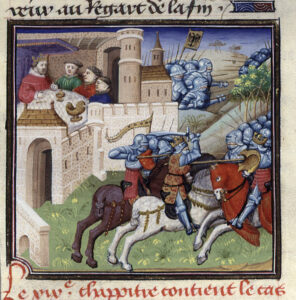 veir au regart de la fin
Le xive. chappitre contient le cas